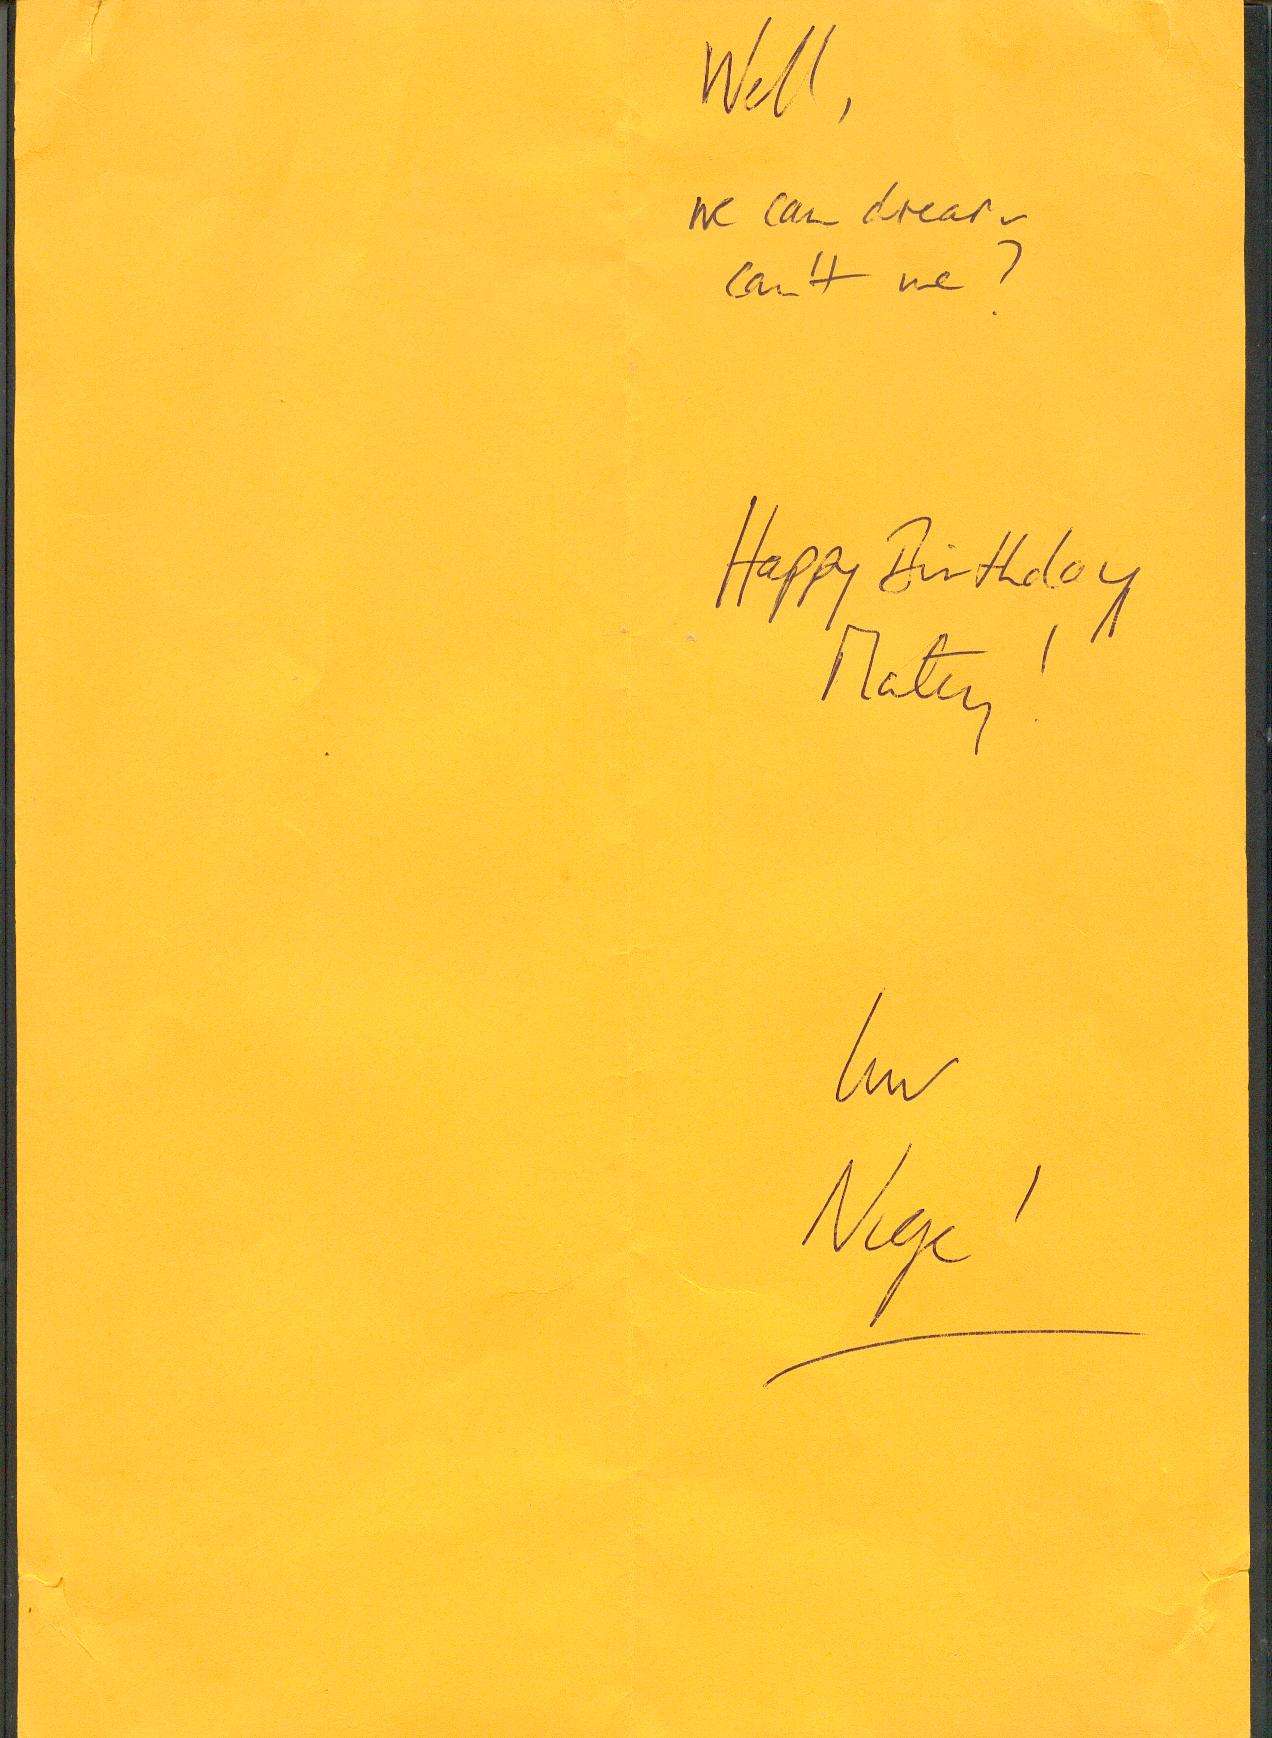 Well,
we can dream
can't we?
Happy Birthday
Matey!
luv
Nige!